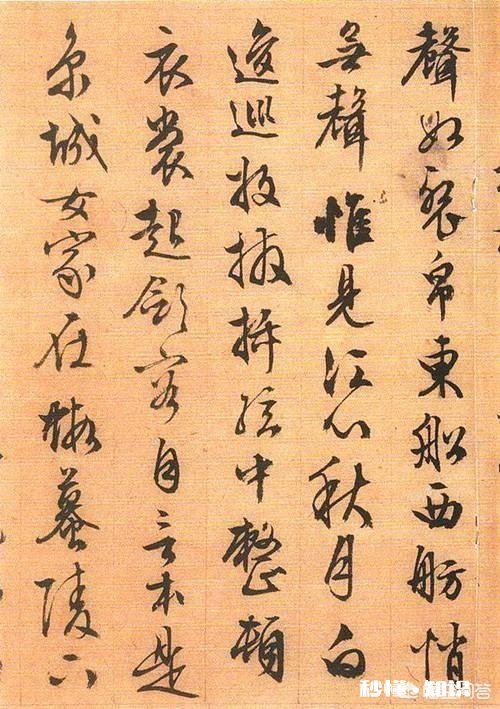 聲如裂帛東船西舫悄
無聲惟見江心秋月白
逡巡放撥插絃中整頓
衣裳起斂容自言本是
京城女家在蝦蟇陵下
秒懂·知识
问答